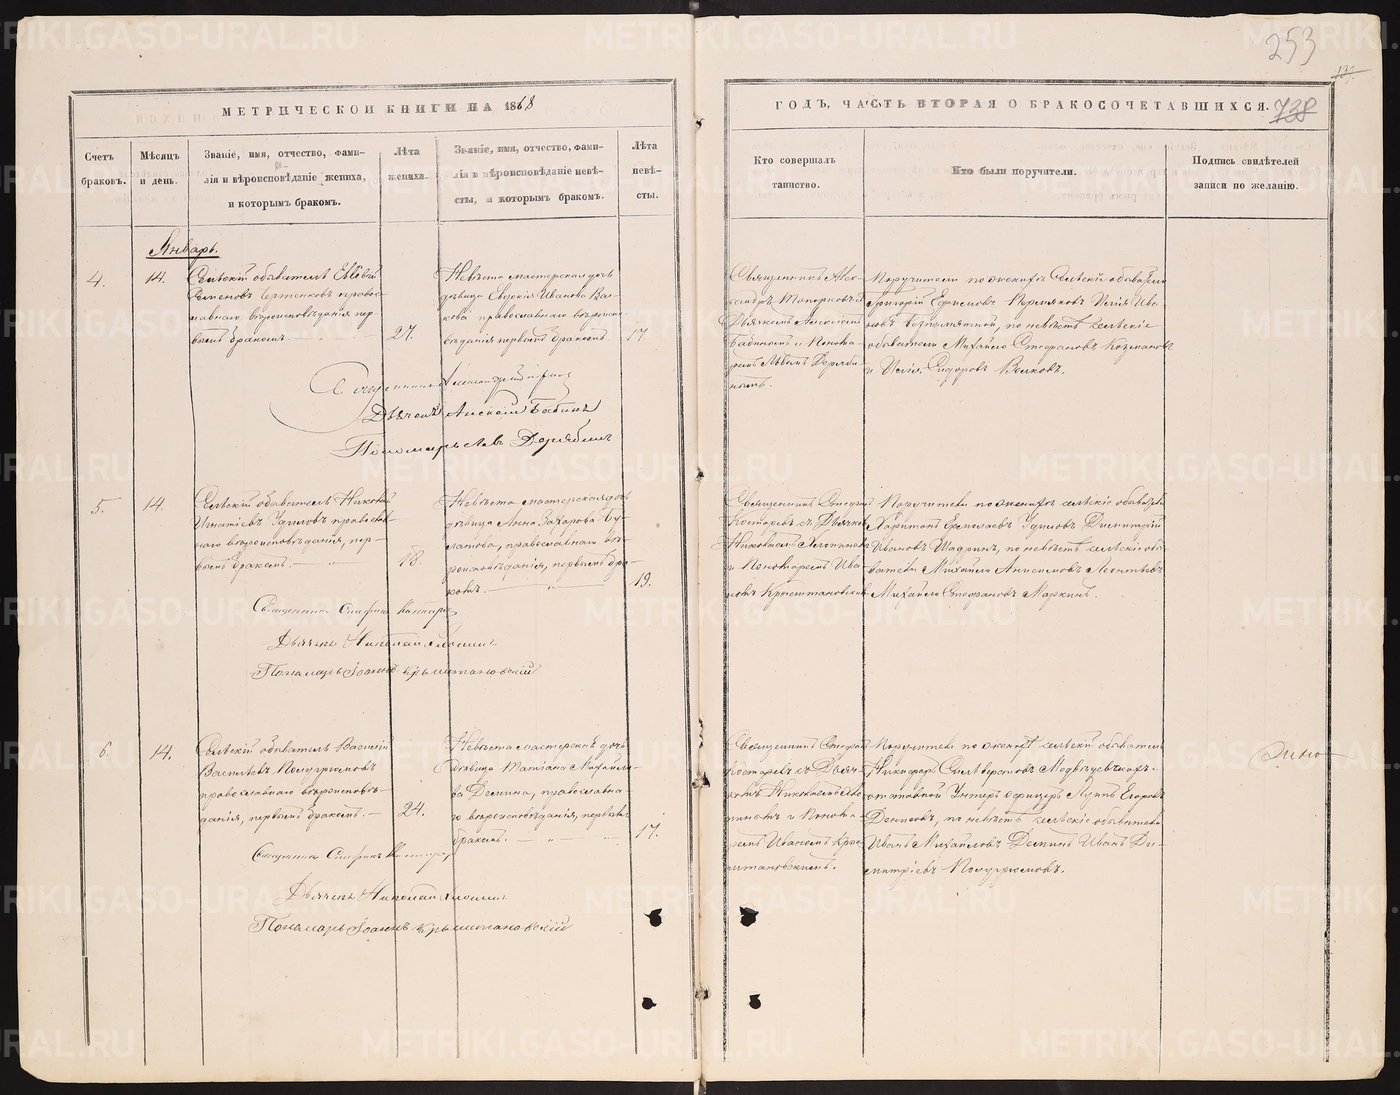 253
132.
МЕТРИЧЕСКОЙ КНИГИ НА 1868
ГОДЪ, ЧАСТЬ ВТОРАЯ О БРАКОСОЧЕТАВШИХСЯ.
738
Счетъ
браковъ.
Мѣсяцъ
и день.
Званіе, имя, отчество, фами-
лія и вѣроисповѣданіе жениха,
и которымъ бракомъ.
Лѣта
жениха.
Званіе, имя, отчество, фами-
лія и вѣроисповѣданіе невѣ-
сты, и которымъ бракомъ.
Лѣта
невѣ-
сты.
Кто совершалъ
таинство.
Кто были поручители.
Подпись свидѣтелей
записи по желанію.
Январь.
4.
14.
Сельскій обыватель Евсевій
Семеновъ православ-
славнаго вѣроисповѣданія пер-
вымъ бракомъ.
27.
Невѣста мастерская дочь
дѣвица Евдокія Иванова Вол-
кова православнаго вѣроиспо-
вѣданія первымъ бракомъ
17.
Священникъ Алек-
сандръ Топорковъ съ
Дьячкомъ Алексѣемъ
Бабинымъ и Понома-
ремъ Львомъ Деряби-
нымъ.
Поручители по женихѣ Сельскіе обыватели
Григорій Ефимовъ Пермяковъ Илія Ива-
новъ Безпамятной, по невѣстѣ сельскіе
обыватели Михайло Стефановъ Козманов
и Илія Сидоровъ Волковъ.
Священникъ Александръ
Дьячекъ Алексѣй Бабинъ
Пономарь Левъ Дерябинъ
5.
14.
Сельскій обыватель Николай
Игнатіевъ Удиловъ православ-
наго вѣроисповѣданія, пер-
вымъ бракомъ.
18.
Невѣста мастерская дочь
дѣвица Анна Захарова Бу-
латова, православнаго вѣ-
роисповѣданія, первымъ бра-
комъ.
19.
Священникъ Стефан
Костаревъ съ Дьячко
Николаемъ
и Пономаремъ Ива-
номъ Крыштановским
Поручители по женихѣ сельскіе обыватели
Харитонъ Ермолаевъ Удиловъ Димитрій
Ивановъ Шадринъ, по невѣстѣ сельскіе обы-
ватели Михайло Анисимовъ Леонтьевъ
Михайло Стефановъ Маркинъ.
Священникъ Стефанъ Костаревъ
Дьячекъ Николай
Пономарь Іоаннъ Крыштановскій
6.
14.
Сельскій обыватель Василій
Василіевъ Полуруковъ
православнаго вѣроисповѣ-
данія, первымъ бракомъ.
24.
Невѣста мастерская дочь
дѣвица Татіана Михайло-
ва Демина, православна-
го вѣроисповѣданія, первымъ
бракомъ.
17.
Священникъ Стефан
Костаревъ съ Дьяч-
комъ Николаемъ
и Понома-
ремъ Иваномъ Кры-
штановскимъ.
Поручители по женихѣ сельскій обыватель
Никифоръ Сильверстовъ Медвѣдевъ
отставной Унтеръ офицеръ Егоровъ
по невѣстѣ сельскіе обыватели
Иванъ Михайловъ Деминъ Иванъ Ди-
митріевъ Полуруковъ.
Священникъ Стефанъ Костаревъ
Дьячекъ Николай
Пономарь Іоаннъ Крыштановскій
METRIKI.GASO-URAL.RU